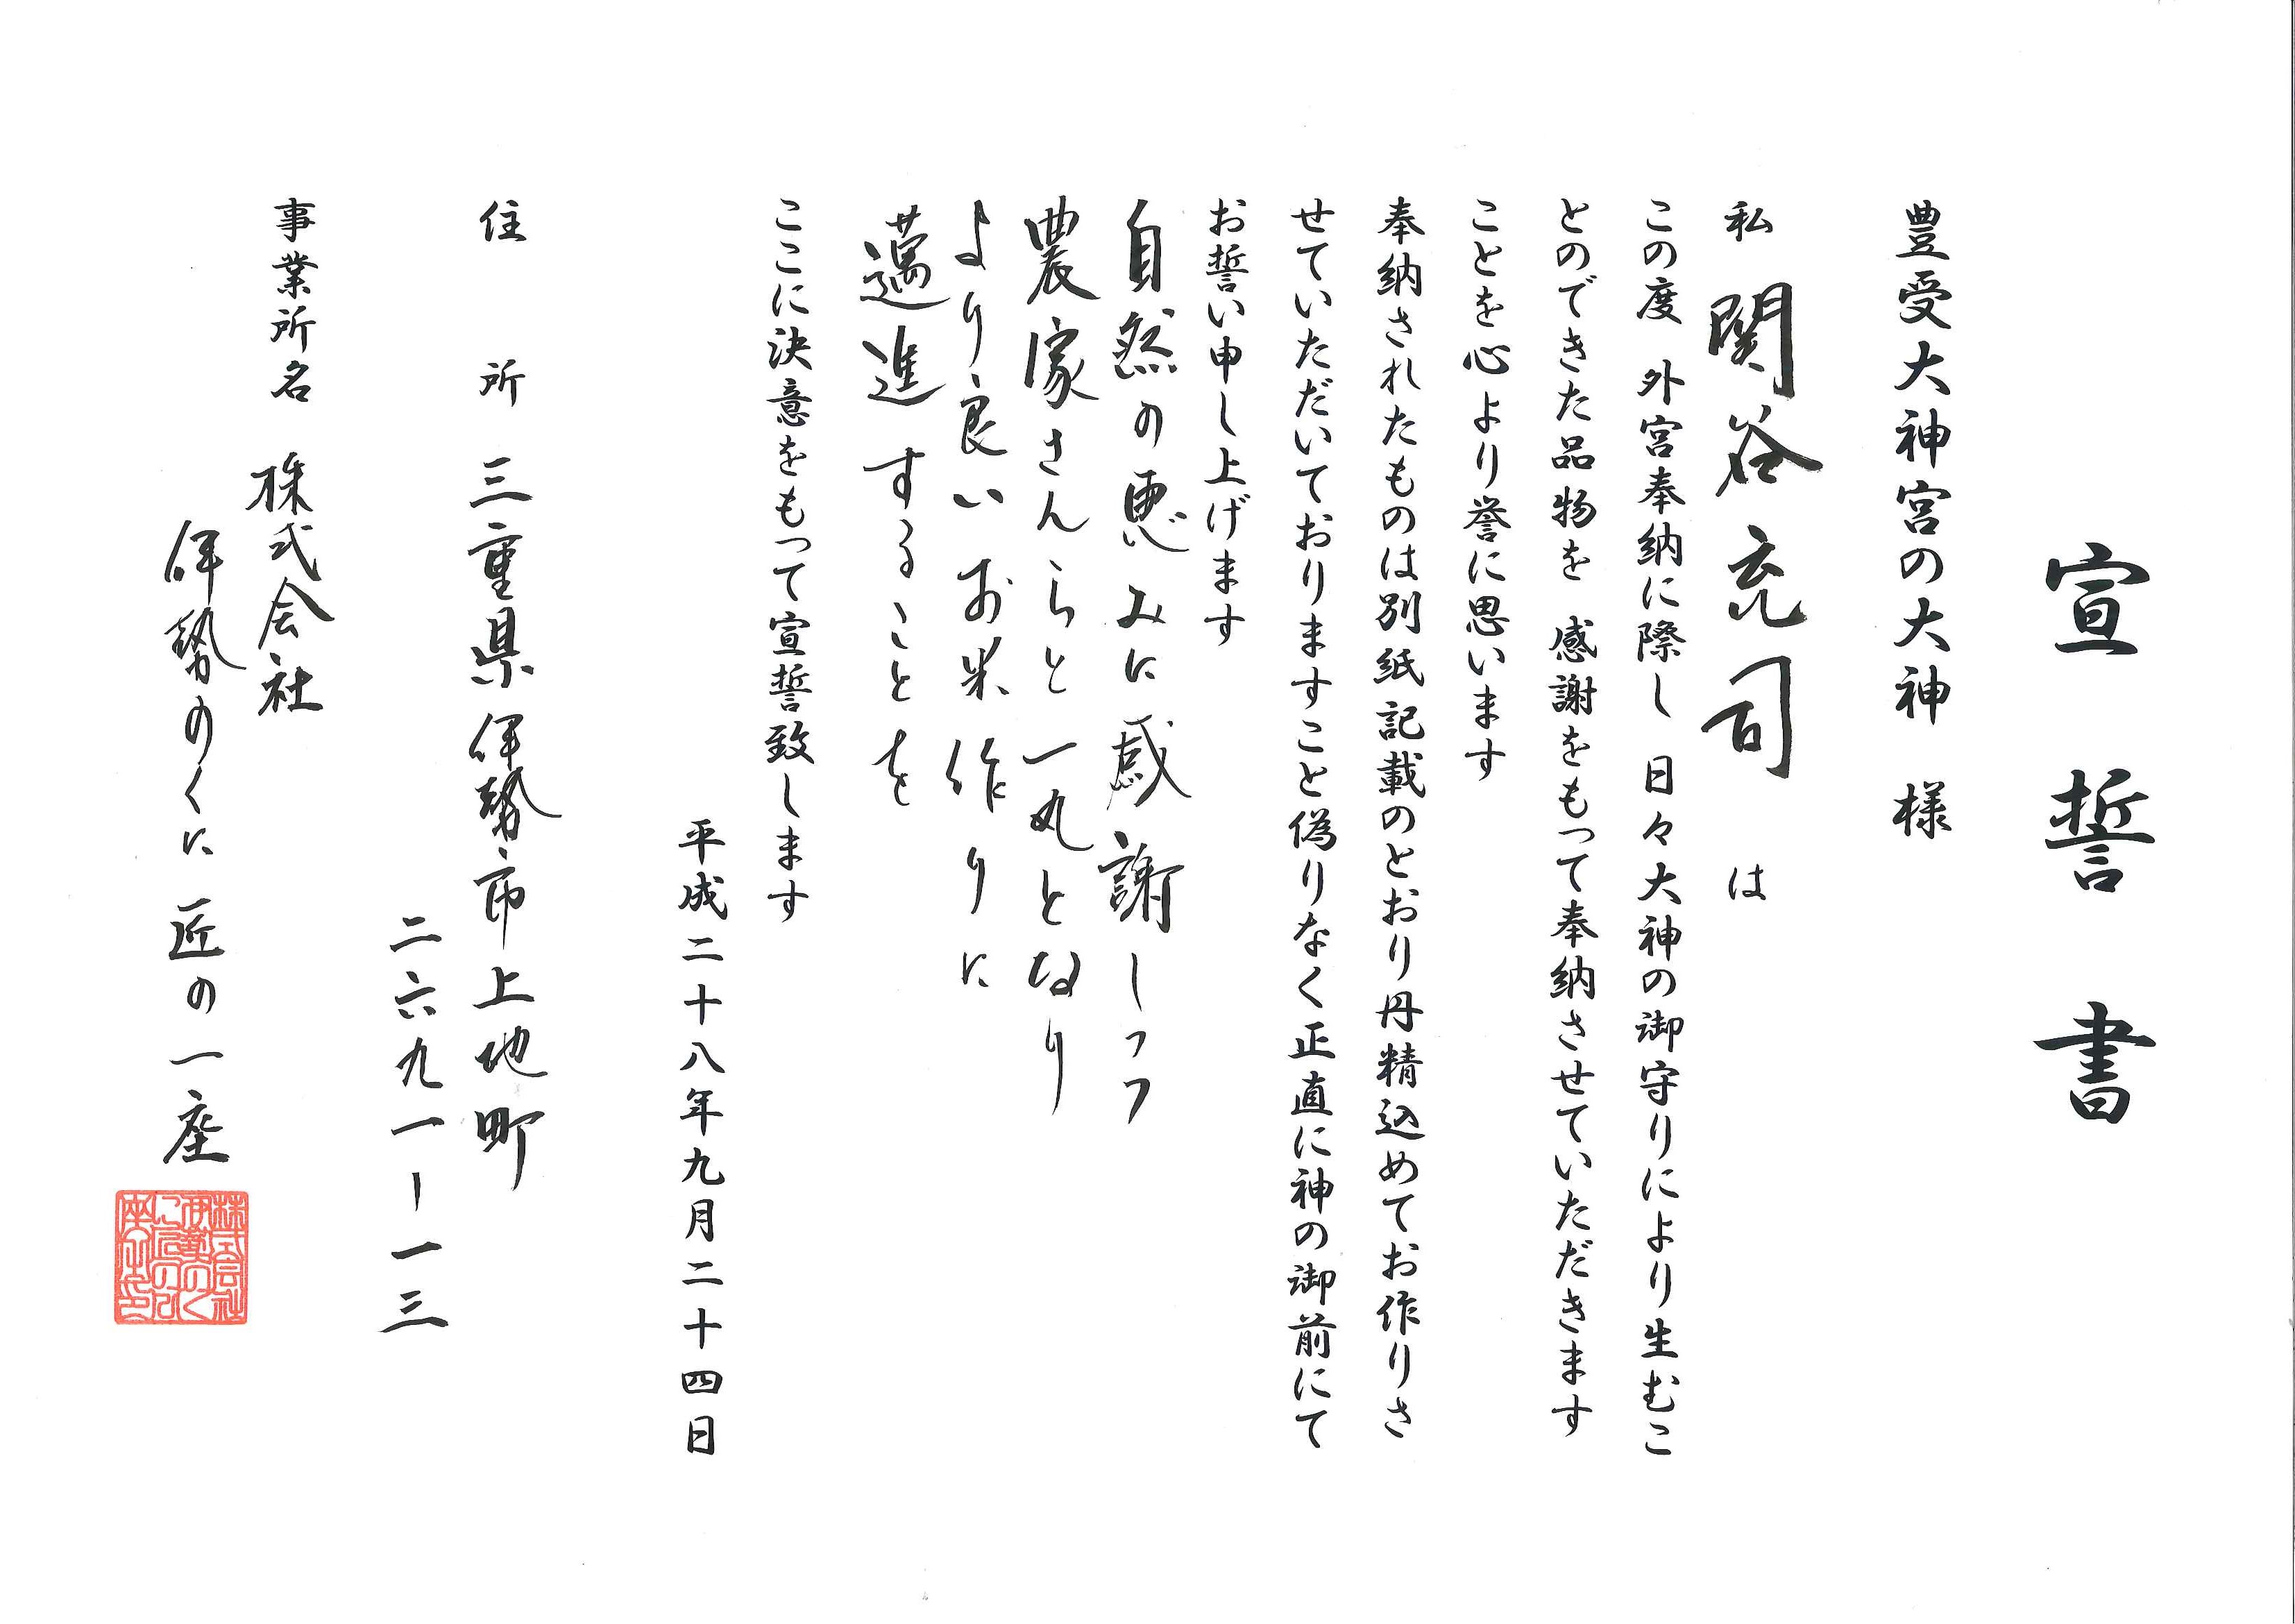 宣誓書
豊受大神宮の大神 様
私 関谷充司 は
この度 外宮奉納に際し 日々大神の御守りにより生むこ
とのできた品物を 感謝をもって奉納させていただきます
ことを心より誉に思います
奉納されたものは別紙記載のとおり丹精込めてお作りさ
せていただいておりますこと偽りなく正直に神の御前にて
お誓い申し上げます
自然の恵みに感謝しつつ
農家さんらと一丸となり
より良いお米作りに
邁進することを
ここに決意をもって宣誓致します
平成二十八年九月二十四日
住所 三重県伊勢市上地町
二六九一ー一三
事業所名 株式会社
伊勢のくに 匠の一座